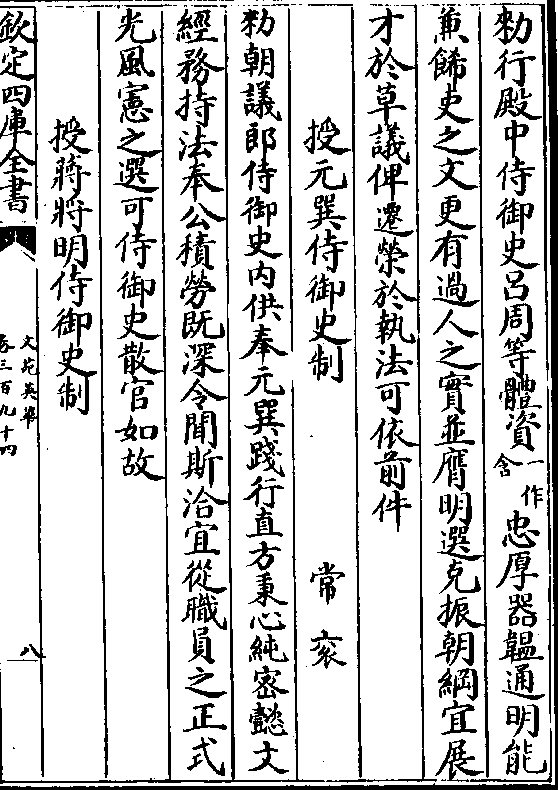 勑行殿中侍御史吕周等體資一作含忠厚器韞通明能
兼餙吏之文更有過人之實並膺明選克振朝綱宜展
才於草議俾遷榮於執法可依前件
授元巽侍御史制
常衮
勑朝議郎侍御史内供奉元巽踐行直方秉心純密懿文
經務持法奉公積勞既深令聞斯洽宜從職員之正式
光風憲之選可侍御史散官如故
授蔣將明侍御史制
欽定四庫全書
文苑英華
卷三百九十四
八